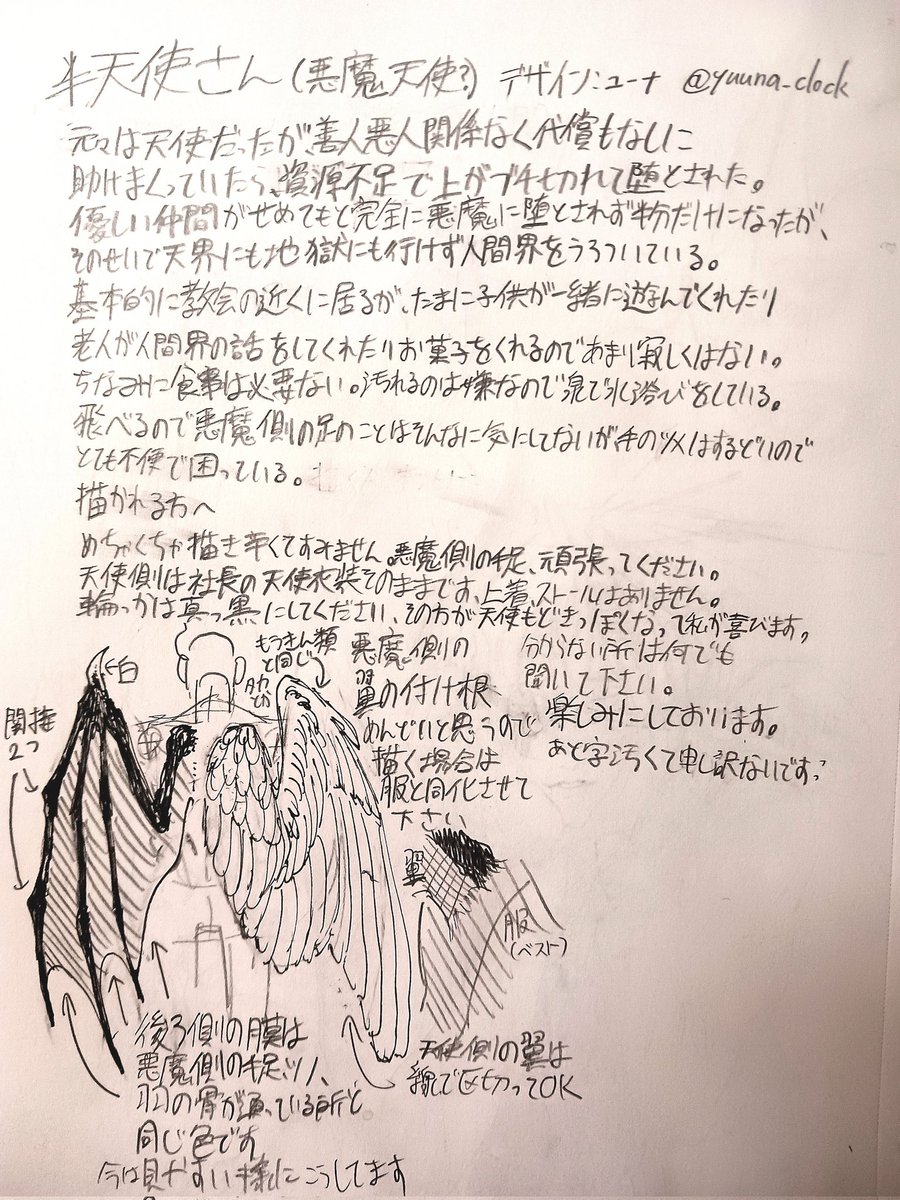 半天使さん(悪魔天使?) デザイン:ユーナ @yuuna_clock
元々は天使だったが、善人悪人関係なく代償もなしに
助けまくっていたら、資源不足で上がブチ切れて堕とされた。
優しい仲間がせめてもと完全に悪魔に堕とされず半分だけになったが、
そのせいで天界にも地獄にも行けず人間界をうろついている。
基本的に教会の近くに居るが、たまに子供が一緒に遊んでくれたり
老人が人間界の話をしてくれたりお菓子をくれるのであまり寂しくはない。
ちなみに食事は必要ない。汚れるのは嫌なので泉で水浴びをしている。
飛べるので悪魔側の足のことはそんなに気にしてないが手のツメはするどいので
とても不便で困っている。
描かれる方へ
めちゃくちゃ描き辛くてすみません。悪魔側の手足、頑張ってください。
天使側は社長の天使衣装そのままです、上着、ストールはありません。
輪っかは真っ黒にしてください、その方が天使もどきっぽくなって私が喜びます。
分からない所は何でも
聞いて下さい。
楽しみにしております。
あと字汚くて申し訳ないですっ
白
もうきん類
と同じ
タカ
とか
関接
2つ
悪魔側の
翼の付け根
めんどいと思うので
描く場合は
服と同化させて
下さい
翼
服
(ベスト)
後ろ側の膜は
悪魔側の手足、ツノ、
羽の骨が通っている所と
同じ色です
今は見やすい様にこうしてます
天使側の翼は
線で区切ってOK